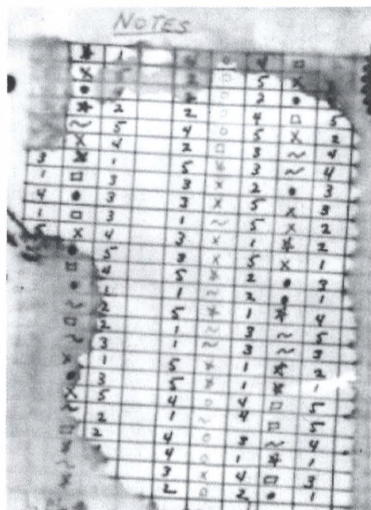 NOTES
* 1 4 ○ 4 □
X 5 2 □ 5 X
● 4 * ○ 2 ●
* 2 2 ○ 4 □ 5
~ 5 4 ○ 5 X 2
X 4 2 □ 3 ~ 4
3 * 1 5 * 3 ~ 4
1 □ 3 3 X 2 ● 3
4 ● 3 3 X 5 X 3
1 □ 3 1 ~ 5 X 2
5 X 4 3 X 1 * 2
● 5 3 X 5 X 1
□ 4 5 * 2 ● 3
● 1 1 ~ 2 ● 1
~ 2 5 * 1 * 4
□ 2 1 ~ 3 ~ 5
~ 3 1 ~ 3 ~ 3
X 1 5 * 1 * 2
● 3 5 * 1 * 1
X 5 4 ○ 4 □ 5
~ 2 1 ~ 4 □ 5
* 2 4 ○ 3 ~ 4
4 ○ 1 * 1
3 X 4 □ 3
2 □ 2 ● 1